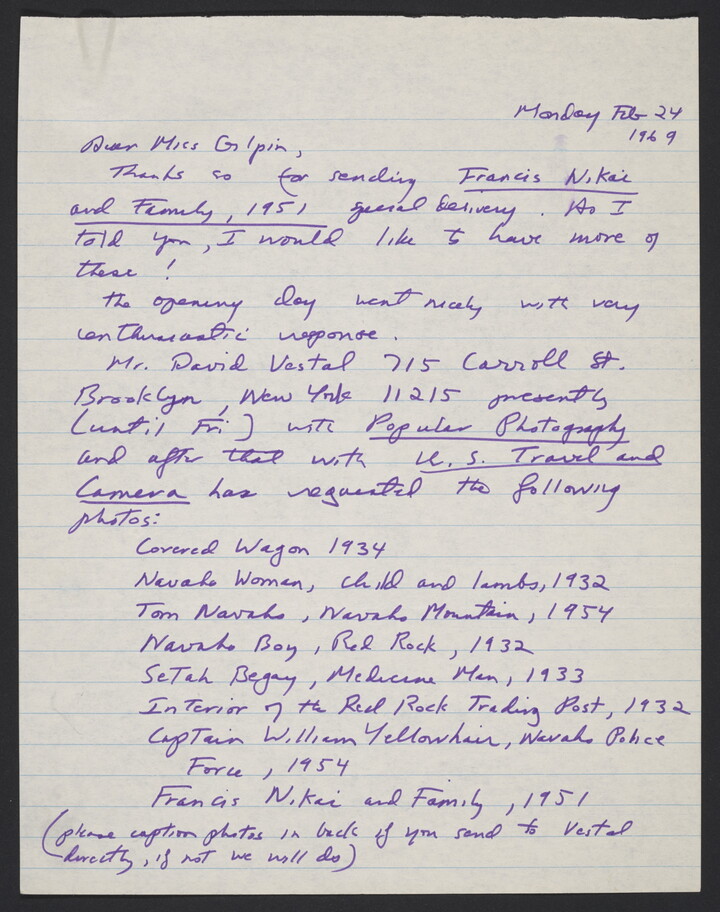 Monday Feb 24
1969
Dear Miss Gilpin,
Thanks so for sending Francis Nakai
and Family, 1951 special delivery. As I
told you, I would like to have more of
these!
The opening day went nicely with very
enthusiastic response.
Mr. David Vestal 715 Carroll St.
Brooklyn, New York 11215 presently
(until Fri) with Popular Photography
and after that with U.S. Travel and
Camera has requested the following
photos:
Covered Wagon 1934
Navaho Woman, child and lambs, 1932
Tom Navaho, Navaho Mountain, 1954
Navaho Boy, Red Rock, 1932
SeTah Begay, Medicine Man, 1933
Interior of the Red Rock Trading Post, 1932
Captain William Yellowhair, Navaho Police
Force, 1954
Francis Nakai and Family, 1951
(please caption photos in back if you send to Vestal
directly, if not we will do)